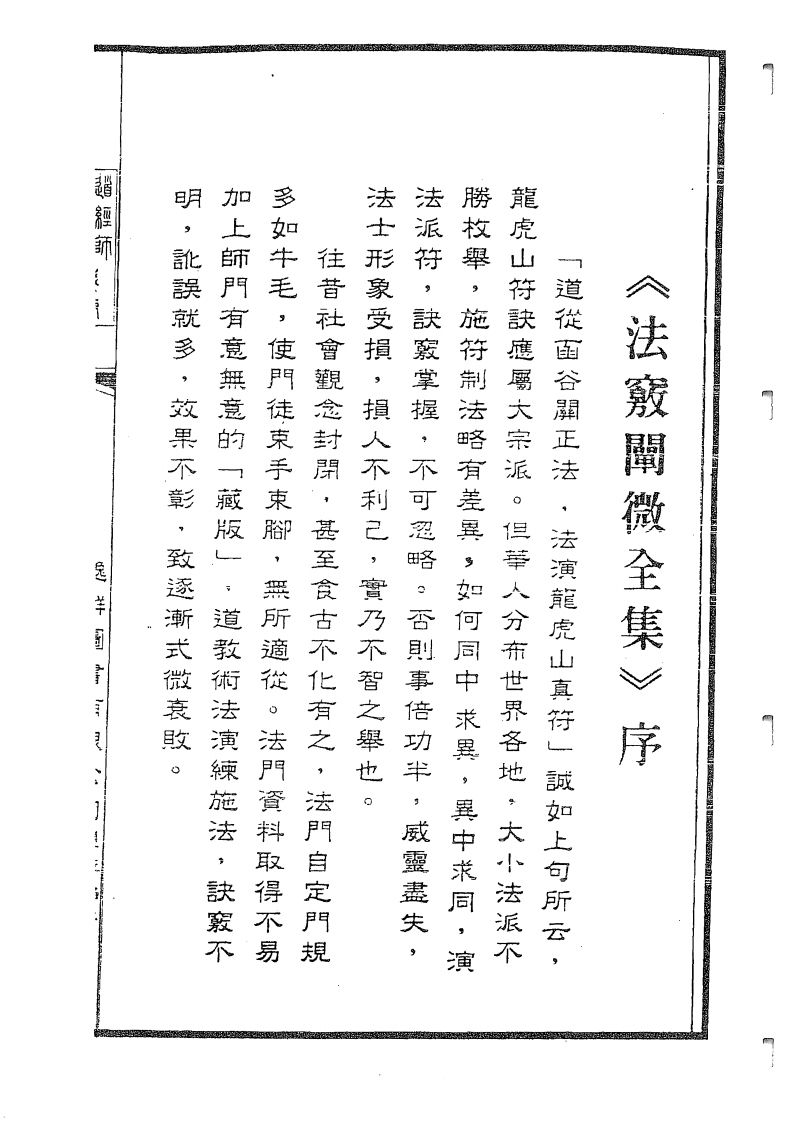 《法竅闡微全集》序
「道從函谷關正法、法演龍虎山真符」誠如上句所云，
龍虎山符訣應屬大宗派。但華人分布世界各地，大小法派不
勝枚舉，施符制法略有差異，如何同中求異，異中求同，演
法派符，訣竅掌握，不可忽略。否則事倍功半，威靈盡失，
法士形象受損，損人不利己，實乃不智之舉也。
往昔社會觀念封閉，甚至食古不化有之，法門自定門規
多如牛毛，使門徒束手束腳，無所適從。法門資料取得不易
加上師門有意無意的「藏版」，道教術法演練施法，訣竅不
明，訛誤就多，效果不彰，致逐漸式微衰敗。
道經師
逸群圖書有限公司